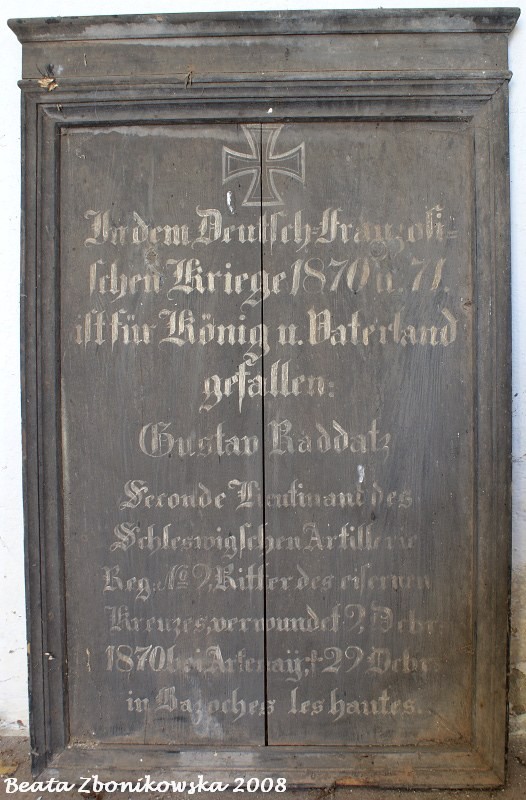 In dem Deutsch-Französi-
schen Kriege 1870 u. 71.
ist für König u. Vaterland
gefallen:
Gustav Raddatz
Seconde Lieutinant des
Schleswigschen Artillerie
Reg. No 9, Ritter des eisernen
Kreuzes, verwundet 2, Dcbr.
1870 bei Artenaÿ, † 29 Dcbr.
in Bazoches les hautes.
Beata Zbonikowska 2008